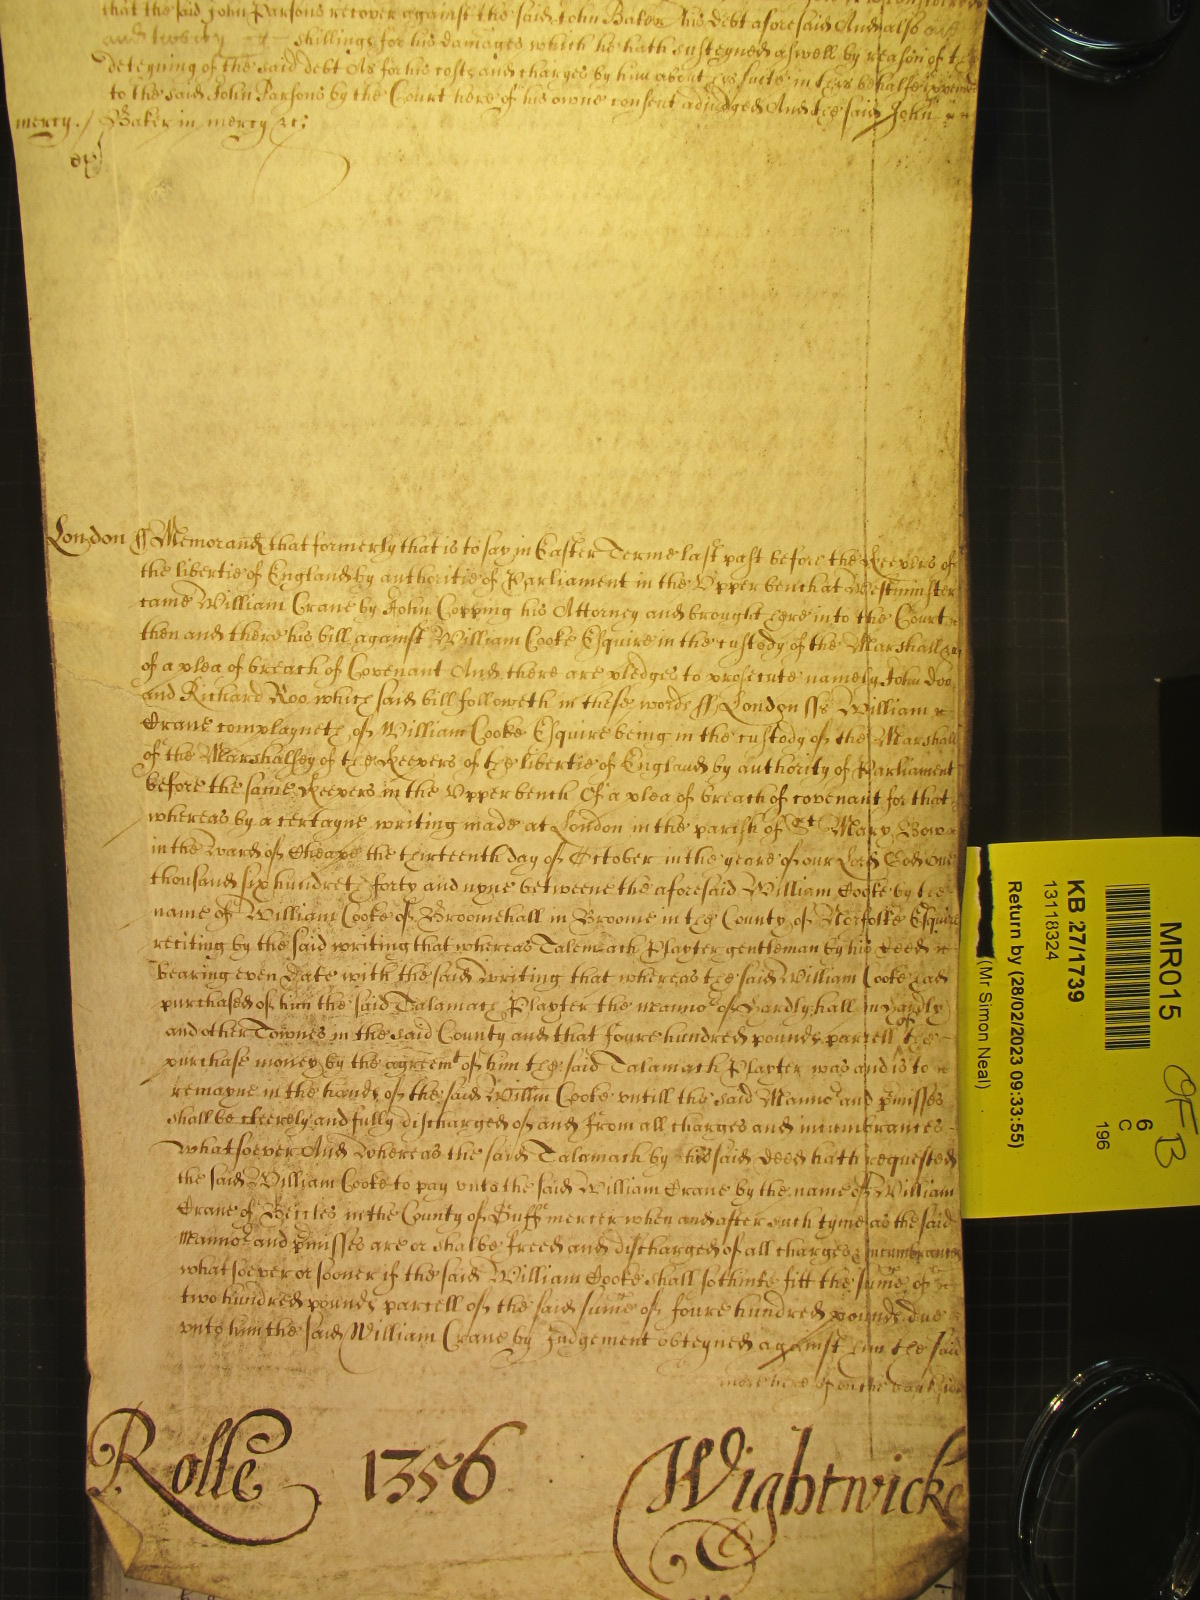 that the said John Parsons recover against the said John Baker his debt aforesaid And also
and twenty shillings for his damages which he hath susteyned aswell by reason of the
deteyning of the said debt As for his costs and charges by him about his suite in this behalfe expended
to the said John Parsons by the Court here of his owne consent adjudged And the said John
mercy./ Baker in mercy &c:
London ss Memorand that formerly that is to say in Easter Terme last past before the Keepers of
the libertie of England by authoritie of Parliament in the Upper bench at Westminster
came William Crane by John Copping his Attorney and brought here into the Court
then and there his bill against William Cooke Esquire in the custody of the Marshall &c
of a plea of breach of Covenant And there are pledges to prosecute namely John Doo
and Richard Roo which said bill followeth in these words ss London ss William
Crane complayneth of William Cooke Esquire being in the custody of the Marshall
of the Marshalsey of the Keepers of the libertie of England by authority of Parliament
before the same Keepers in the Upper bench Of a plea of breach of covenant for that
whereas by a certayne writing made at London in the parish of St Mary Bow
in the ward of Cheape the thirteenth day of October in the yeare of our Lord God one
thousand six hundreth forty and nyne betweene the aforesaid William Cooke by the
name of William Cooke of Broomehall in Broome in the County of Norfolke Esquire
reciting by the said writing that whereas Talemach Playter gentleman by his deed
bearing even Date with the said writing that whereas the said William Cooke had
purchased of him the said Talamach Playter the mannor of Yardly hall in Yardly
and other Townes in the said County and that foure hundred pounds parcell of the
purchase money by the agreemt of him the said Talamach Playter was and is to
remayne in the hands of the said Willm Cooke untill the said Mannor and pmisses
shall be cleerely and fully discharged of and from all charges and incumbrances
whatsoever And whereas the said Talamach by his said deed hath requested
the said William Cooke to pay unto the said William Crane by the name of William
Crane of Beccles in the County of Suff mercer when and after such tyme as the said
Mannor and pmisses are or shalbe freed and discharged of all charges & incumbrances
whatsoever or sooner if the said William Cooke shall so thinke fitt the sume of
two hundred pounds parcell of the said sume of foure hundred pounds due
unto him the said William Crane by Judgement obteyned against him the said
more here of on the back side
Rolle 1356 Wightwicke
MR015
KB 27/1739
13118324
Return by (28/02/2023 09:33:55)
(Mr Simon Neal)
6
C
196
OFB